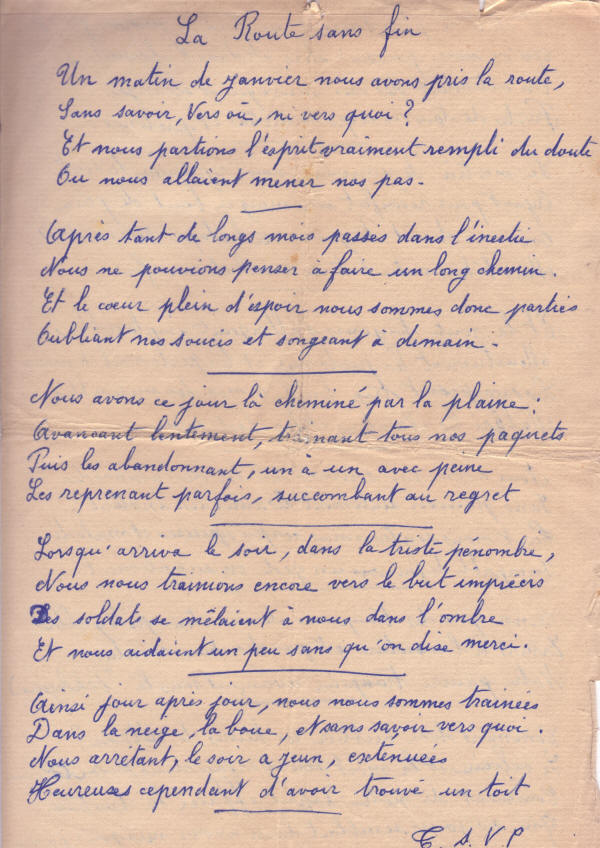 La Route sans fin
Un matin de janvier nous avons pris la route,
Sans savoir, Vers où, ni vers quoi ?
Et nous partions l'esprit vraiment rempli du doute
Ou nous allaient mener nos pas.
Après tant de longs mois passés dans l'inertie
Nous ne pouvions penser à faire un long chemin.
Et le cœur plein d'espoir nous sommes donc parties
Oubliant nos soucis et songeant à demain.
Nous avons ce jour là cheminé par la plaine :
Avancant lentement, trainant tous nos paquets
Puis les abandonnant, un à un avec peine
Les reprenant parfois, succombant au regret
Lorsqu'arriva le soir, dans la triste pénombre,
Nous nous trainions encore vers le but imprécis
Des soldats se mêlaient à nous dans l'ombre
Et nous aidaient un peu sans qu'on dise merci.
Ainsi jour après jour, nous nous sommes trainées
Dans la neige, la boue, et sans savoir vers quoi.
Nous arrêtant, le soir a jeun, extenuées
Heureuses cependant d'avoir trouvé un toit
T. S. V. P